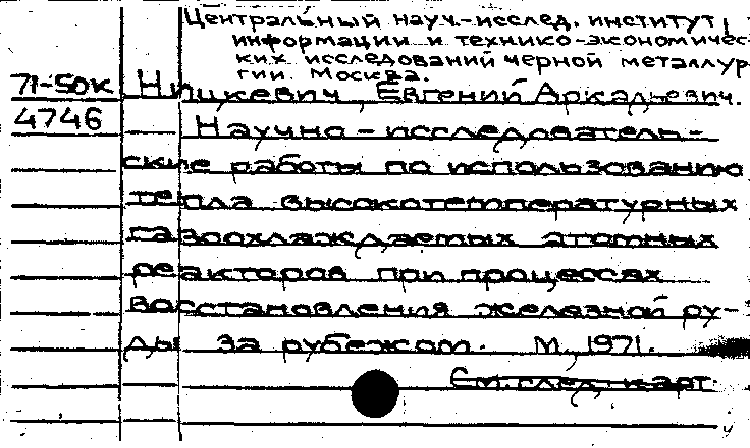 Центральный науч.-исслед. институт
информации и технико-экономичес-
ких исследований черной металлур-
гии. Москва.
71-50К Ницкевич, Евгений Аркадьевич.
4746 Научно-исследователь-
ские работы по использованию
тепла высокотемпературных
газоохлаждаемых атомных
реакторов при процессах
восстановления железной ру-
ды за рубежом. М., 1971.
См. след. карт.